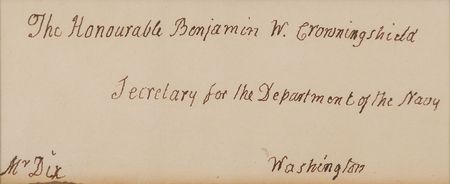 The Honourable Benjamin W. Crowningshield
Secretary for the Department of the Navy
Mr Dix Washington